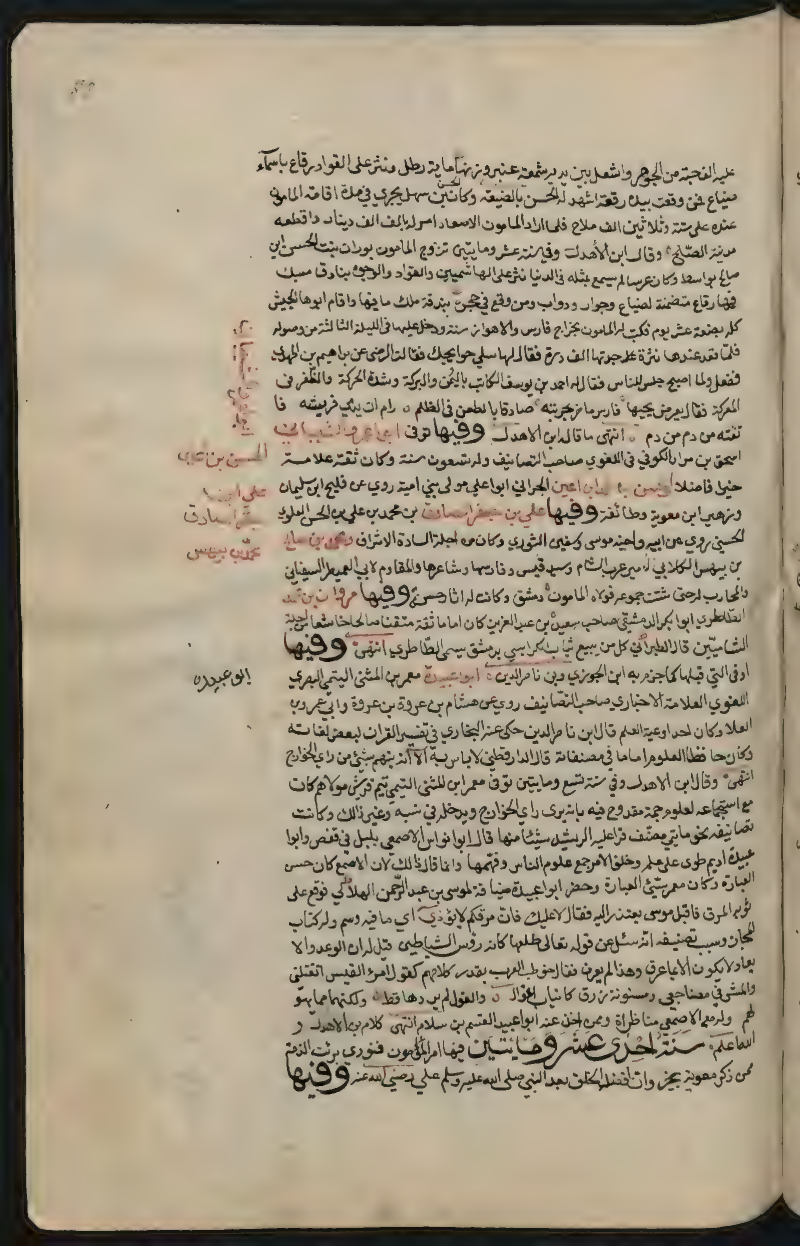 عليه الف حبة من الجوهر واشعل بين يديه شمعة عنبر وزنها ماية رطل ونثر على القواد برقاع باسماء
ضياع فمن وقعت بيده رقعة اشهد له الحسن بالضيعة وكان الحسن بن سهل يجري في مدة اقامة المامون
عنده على ستة وثلاثين الف ملاح فلما اراد المامون الاصعاد امر له بالف الف دينار واقطعه
مدينة الصلح وقال ابن الأهدل وفي سنة عشر ومايتين تزوج المامون بوران بنت الحسن ابن
سهل بواسط وكان عرسا لم يسمع بمثله في الدنيا نثر على الهاشميين والقواد والوجوه بنادق مسك
فيها رقاع متضمنة لضياع وجوار ودواب ومن وقع في حجره بندقة ملك ما فيها واقام ابوها الجيش
كله بضعة عشر يوم فكتب له المامون بخراج فارس والاهواز سنة ودخل عليها في الليلة الثالثة من وصوله
فلما قعد عندها نثرت عليه جدتها الف درة فقال لها سلي حوايجك فقالت الرضى عن ابراهيم بن المهدي
ففعل ولما اصبح جلس للناس فقال له احمد بن يوسف الكاتب باليمن والبركة وشدة الحركة والظفر في
المعركة فقال يعرض بحيضها فارس ماض بحربته صادقا بالطعن في الظلم رام ان يدمي فريسته فا
تقته من دم من دم انتهى ما قاله ابن الاهدل وفيها توفى ابو عمرو الشيباني
اسحق بن مرار الكوفي اللغوي صاحب التصانيف وله تسعون سنة وكان ثقة علامة
خيرا فاضلا والحسن بن محمد ابن اعين الحراني ابو علي مولى بني امية روى عن فليح ابن سليمان
وزهير ابن معوية وطائفة وفيها علي بن جعفر الصادق بن محمد بن علي بن الحسن العلوي
الحسيني روى عن ابيه واخيه موسى وسفين الثوري وكان من جلة السادة الاشراف ومحمد بن صالح
بن بيهس الكلابي امير عرب الشام وسيد قيس وفارسها وشاعرها والمقاوم لابي العميطر السفياني
والمحارب له حتى شتت جموعه فولاه المامون دمشق وكانت له اثار حسنة وفيها مروان بن محمد
الطاطري ابو بكر الدمشقي صاحب سعيد بن عبد العزيز كان اماما ثقة متقنا صالحا خاشعا من جلة
الشاميين قال الطبراني كل من يبيع ثياب الكرابيس بدمشق يسمى الطاطري انتهى وفيها
او في التي قبلها كما جزم به ابن الجوزي وابن ناصر الدين ابو عبيدة معمر بن المثنى التيمي البصري
اللغوي العلامة الاخباري صاحب التصانيف روى عن هشام بن عروة بن عروة وابي عمرو بن
العلا وكان احد اوعية العلم قال ابن ناصر الدين حكى عنه البخاري في تفسير القران لبعض لغاته
وكان حافظا لعلوم اماما في مصنفاته قال الدارقطني لا باس به الا انه يتهم بشئ من راي الخوارج
انتهى وقال ابن الاهدل وفي سنة تسع ومايتين توفى معمر ابن المثنى التيمي تيم قريش مولاهم كان
مع استجماعه لعلوم جمة مقدوح فيه بانه يرى راي الخوارج ويدخله في نسبه وغير ذلك وكانت
تصانيفه نحو مايتي مصنف قرا عليه الرشيد شيئا منها قال ابو نواس الاصمعي بلبل في قفص وابوا
عبيدة اديم طوى على علم وخلف الاحمر جمع علوم الناس وفهمها وانما قال ذلك لان الاصمعي كان حسن
العبارة وكان معمر سيئ العبارة وحضر ابو عبيدة ضيافة لموسى بن عبد الرحمن الهلالي فوقع على
ثوبه المرق فاقبل موسى يعتذر اليه فقال لا عليك فان مرقكم لا يؤذي اي ما فيه دسم وله كتاب
المجاز وسبب تصنيفه انه سئل عن قوله تعالى طلعها كانه رؤس الشياطين قيل له ان الوعد والا
يعاد لا يكون الا بما عرف وهذا لم يعرف فقال خوطب العرب بقدر كلامهم كقول امرؤ القيس ايقتلني
والمشرفي مضاجعي ومسنونة زرق كانياب اغوال والغول لم يردها قط ولكنها مما يهو
لهم وله مع الاصمعي مناظراة وممن اخذ عنه ابو عبيد القسم بن سلام انتهى كلام ابن الاهدل و
الله اعلم سنة احدى عشر ومايتين فيها امر المامون فنودي برئت الذمة
ممن ذكر معوية بخير وان افضل الخلق بعد النبي صلى الله عليه وسلم علي رضي الله عنه وفيها
ابو عمرو الشيباني
الحسن بن محمد
علي بن
جعفر الصادق
محمد بن بيهس
ابو عبيدة